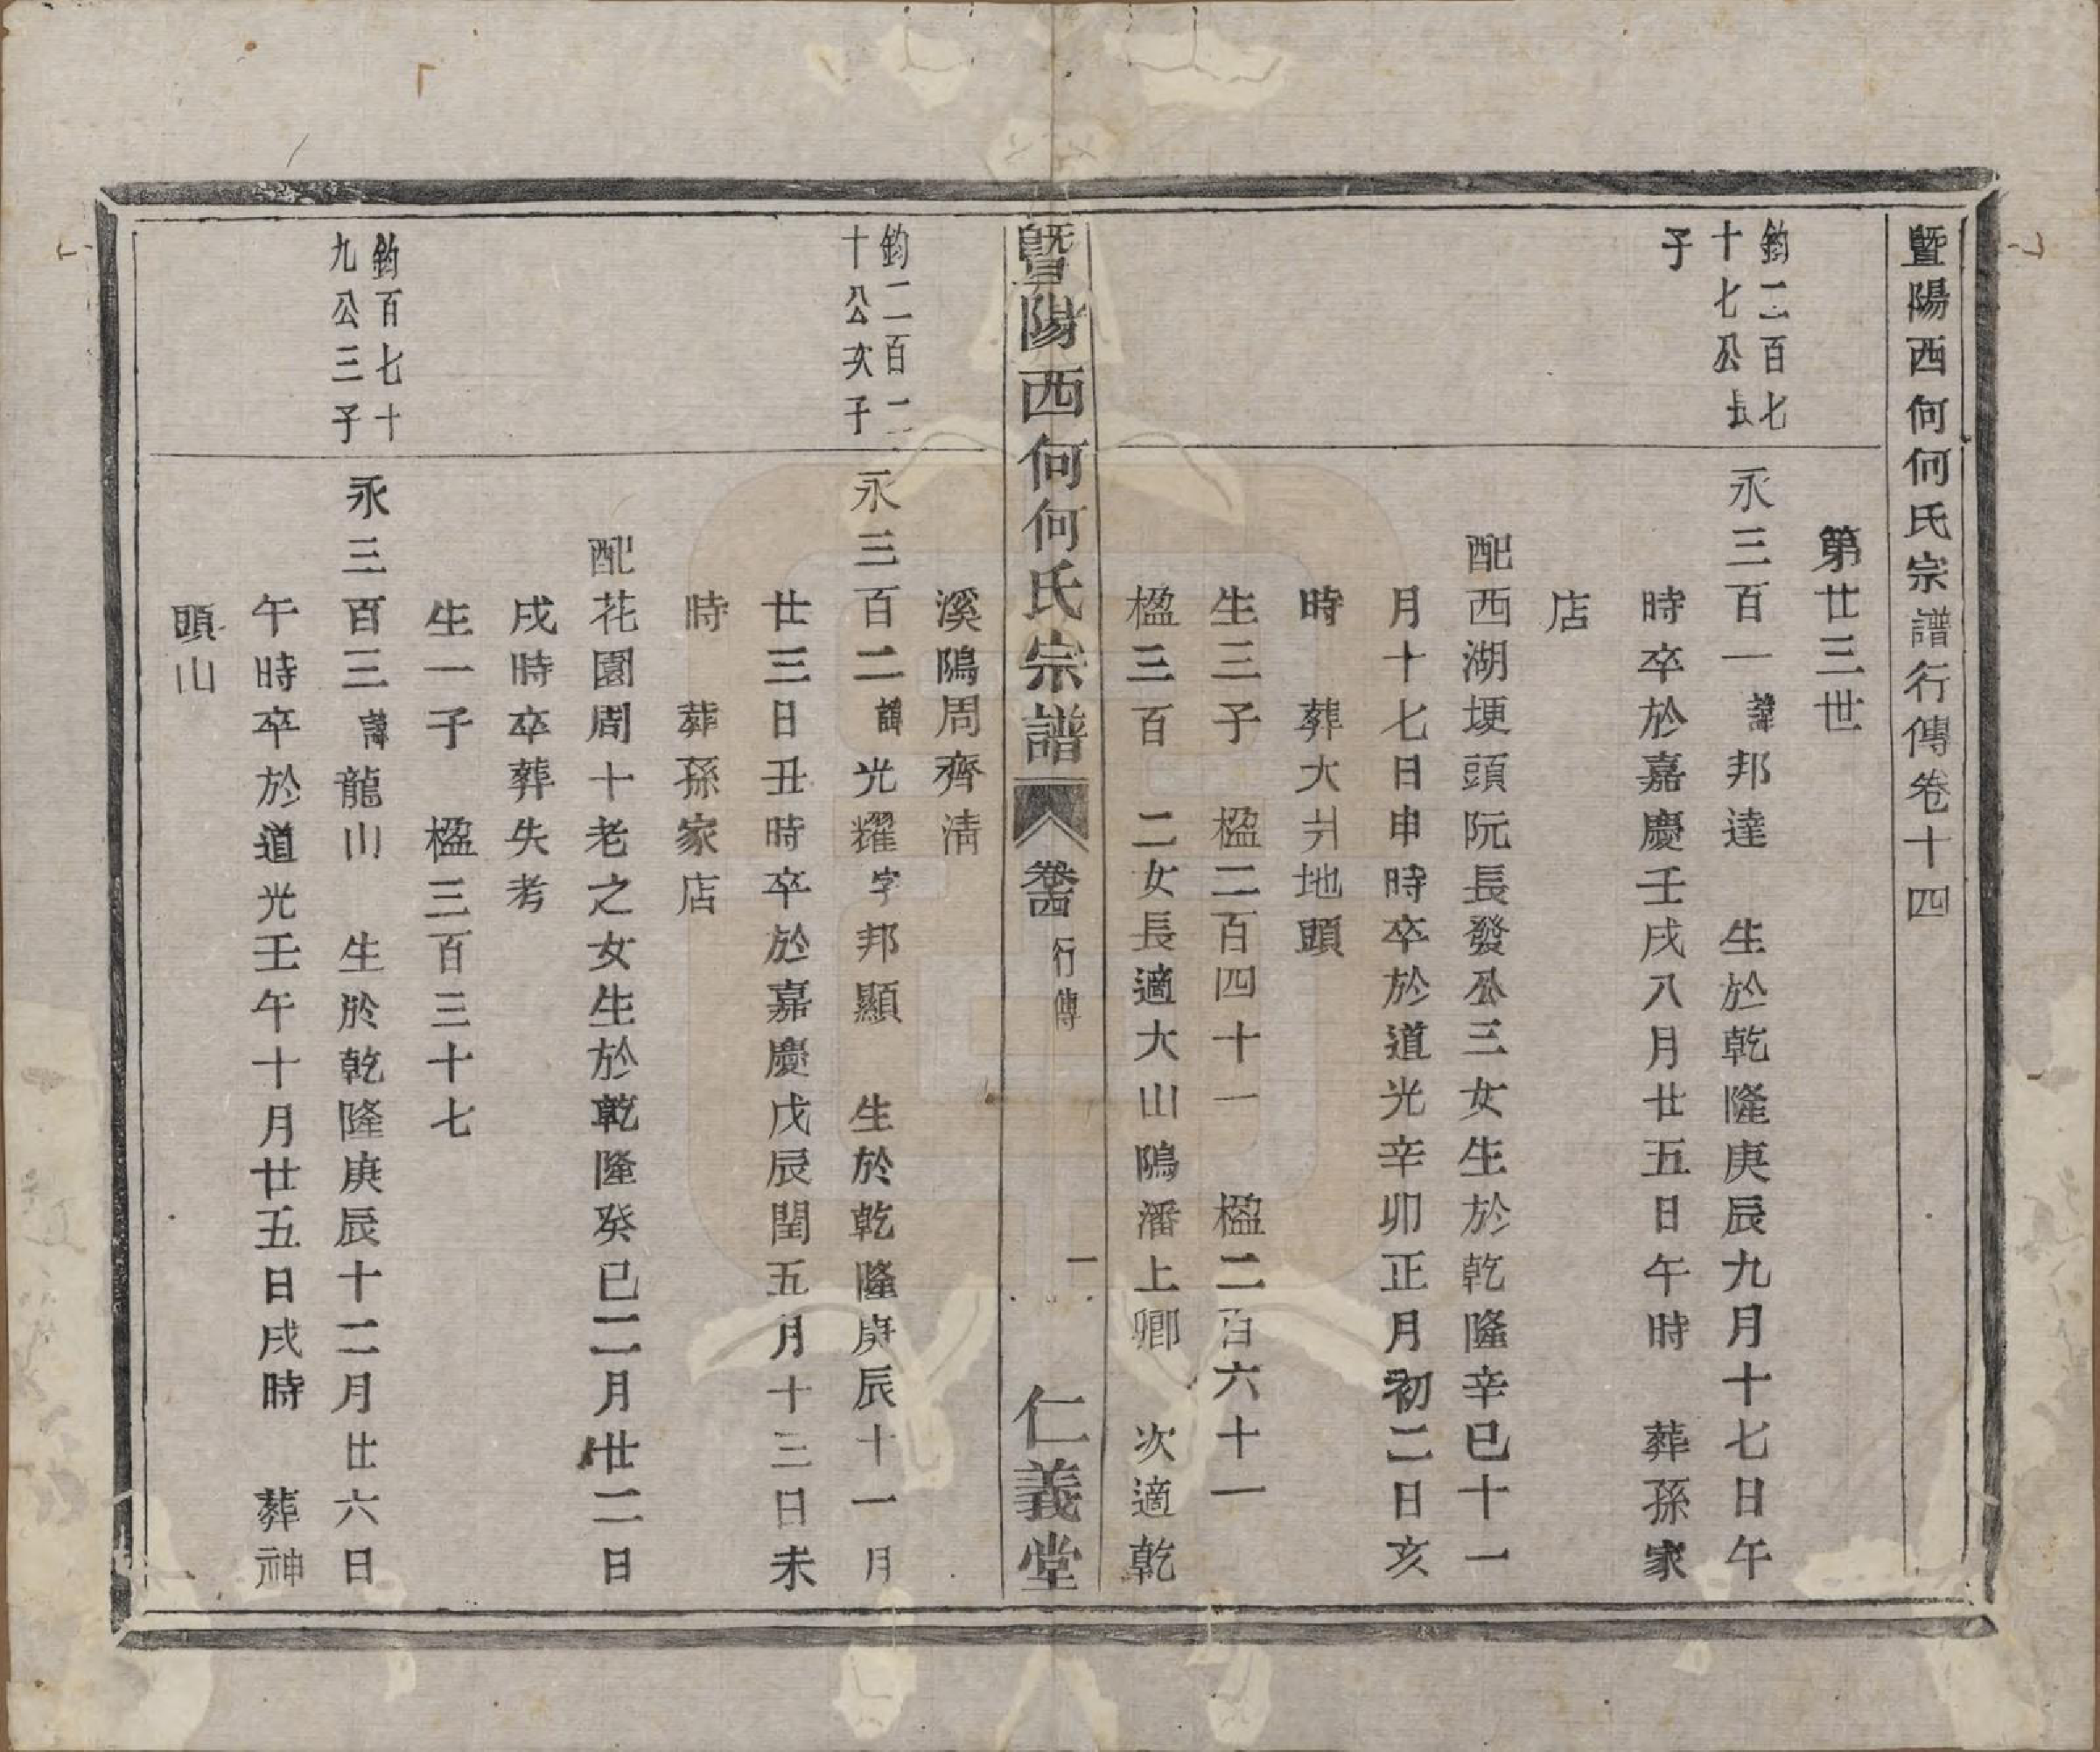 暨陽西何何氏宗譜行傳卷十四
第廿三世
鈞二百七
十七公長
子
永三百一諱邦達 生於乾隆庚辰九月十七日午
時卒於嘉慶壬戌八月廿五日午時 葬孫家
店
配西湖埂頭阮長發公三女生於乾隆辛巳十一
月十七日申時卒於道光辛卯正月初二日亥
時 葬大爿地頭
生三子 楹二百四十一 楹二百六十一
楹三百 二女長適大山隖潘上卿 次適乾
暨陽西何何氏宗譜 卷十四 行傳 一 仁義堂
溪隖周齊清
鈞二百二
十公次子
永三百二諱光耀字邦顯 生於乾隆庚辰十一月
廿三日丑時卒於嘉慶戊辰閏五月十三日未
時 葬孫家店
配花園周十老之女生於乾隆癸巳二月廿二日
戌時卒葬失考
生一子 楹三百三十七
鈞百七十
九公三子
永三百三諱龍山 生於乾隆庚辰十二月廿六日
午時卒於道光壬午十月廿五日戌時 葬神
頭山